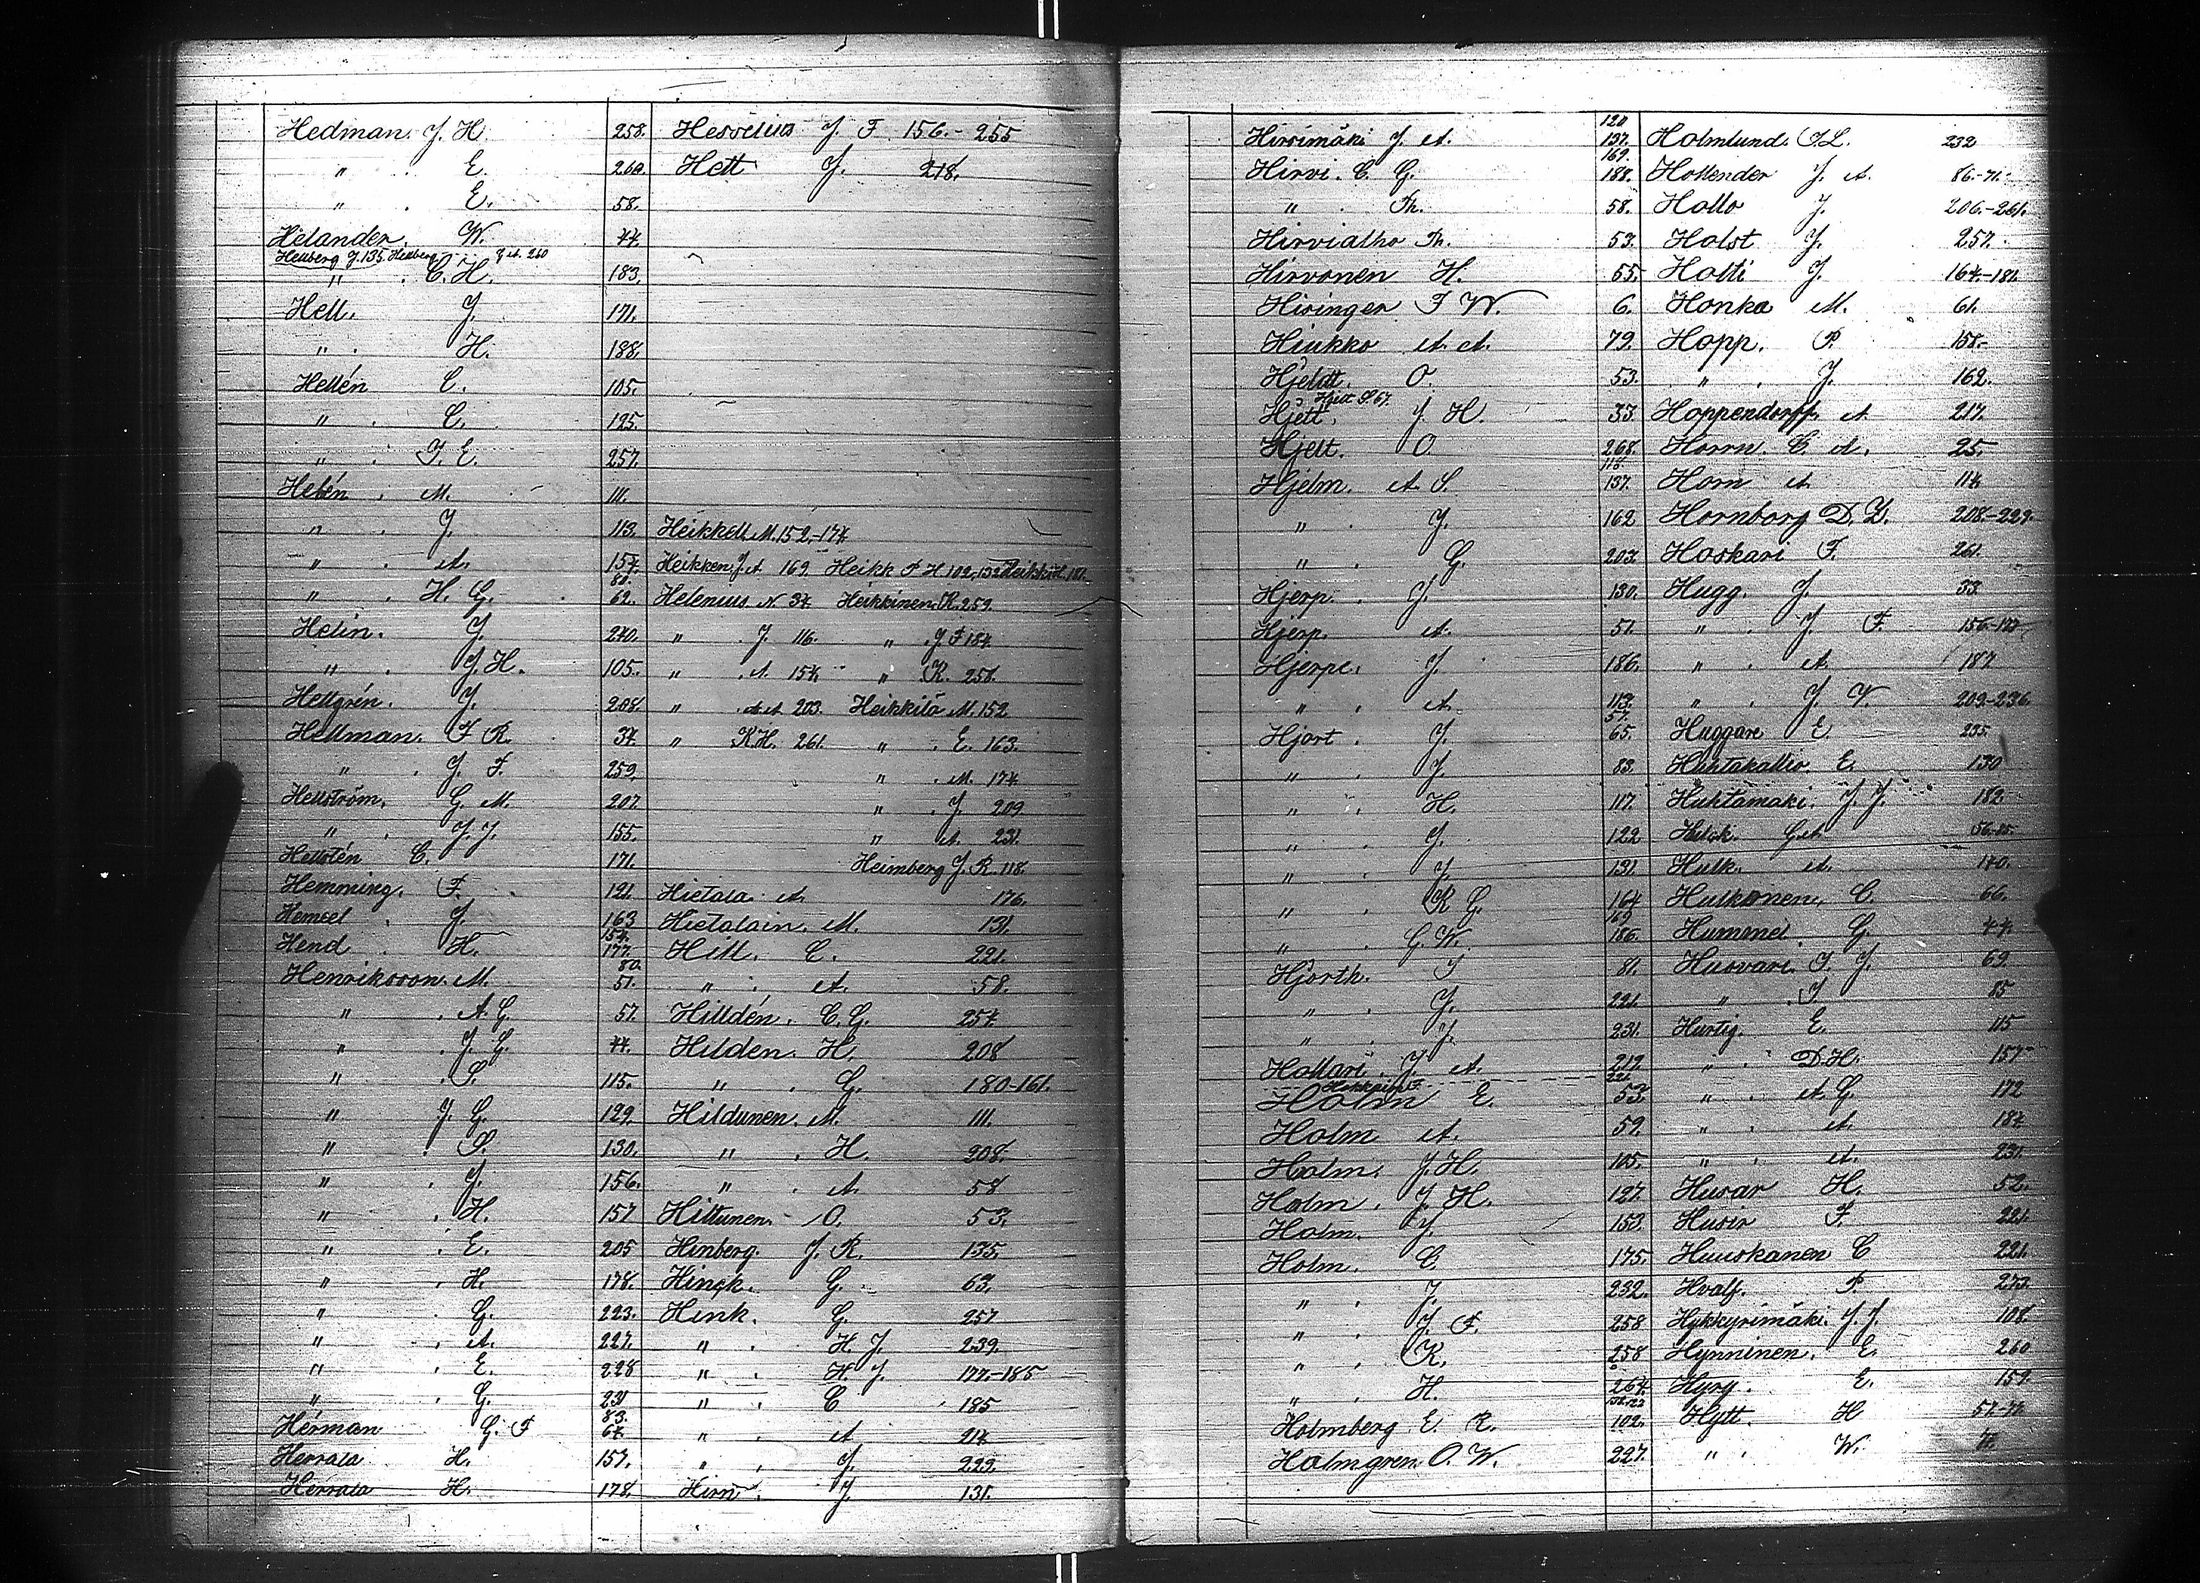 Hedman. J. H. 258.
" . E. 260.
" . E. 58.
Helander. W. 44.
Hellberg J. 135. Hellberg J. A. 260
" . C. H. 183.
Hell. J. 171.
" . H. 188.
Hellén C. 105.
" . C. 125.
" . J. E. 257.
Helén . M. 111.
" . J. 113.
" . A. 154.
80.
" . H. G. 62.
Helin. J. 240.
" . J. H. 105.
Hellgrén. J. 208.
Hellman. F R. 34.
" . J. F. 259.
Hellström. G. M. 207.
" . J. J. 155.
Hellstén C. 171.
Hemming. F. 121.
Hemsel . J. 163
154.
Hend . H. 177.
80.
Henriksson. M. 51.
" . A. G. 57.
" . J. G. 44.
" . S. 115.
" J. G. 129.
" . S. 130.
" . J. 156.
" . H. 157
" . E. 205
" . H. 178.
" . G. 223.
" . A. 227.
" . E. 228
" . G. 231
83.
Herman G. F 64.
Herrala H. 157.
Herrala H. 178.
Hesselius J F 156.-255
Hett J. 218.
Heikkell. M. 152.-174
Heikken. J. A 169. Heikk F H 102, 132
Helenius. N. 34 Heikkinen. K. 259.
" . J 116. " . J F 184.
" . A. 154 " K. 258.
" A. A 203. Heikkilä M. 152
" K H. 261. " . E. 163.
" . M. 174
" . J. 209
" A. 231.
Heimberg J. R. 118.
Hietala. A 176.
Hietalain. M. 131.
Hill. C. 221.
" . A. 58.
Hilldén. C. G. 254
Hilden. H. 208
" . G. 180-161.
Hildunen. M. 111.
" . H. 208.
" . A 58
Hiltunen. O. 53.
Hinberg. J. R. 135.
Hinck. G. 63.
Hink. G. 257
" . H. J. 239.
" . H. J. 177.-185
" . C 185
" . A 214
" . J. 229.
Hirn. J. 131.
120
Hirsimäki J. A. 137.
169.
Hirvi. C. G. 188.
" . Th. 58.
Hirvialho Th. 53.
Hirvonen H. 55.
Hisinger F W. 6.
Hiukko A. A. 79.
Hjeldt. O. 53.
Hjelt S. 67.
Hjelt. J H. 33
Hjelt. O. 268.
118.
Hjelm. A. S. 137.
" . J. 162
" . G. 203.
Hjerp. . J. 130.
Hjerp. A. 51.
Hjerpe. J. 186.
" . A. 113.
57.
Hjort . J. 65.
" . J. 83.
" . H. 117.
" . J. 122
" . J 131.
" . K G. 164
169
" . G. W. 186.
Hjorth. J 81.
" . J. 221.
" . J. 231.
Hollari. J. A. 217.
221.
Holm E. 53.
Holm A. 59.
Holm. J. H. 105.
Holm . J. H. 127.
Holm. J. 153.
Holm. C. 175.
" . J. 232.
" . J. F. 258
" . K. 258
" . H. 264.
Holmberg. E. R. 102.
Holmgren. O. W. 227.
Holmlund. F. L. 232
Hollender J. A. 86.-71.
Hollo J. 206.-261.
Holst J. 257.
Holti J. 164-181.
Honka M. 61.
Hopp. P. 158.
" . J. 162.
Hoppendorff A. 217.
Horrn. C. A. 25.
Horn A. 114
Hornborg D. Z. 208.-229.
Hoskari F. 261.
Hugg. J. 33
" . J F. 156-
" . A. 187
" . J V. 209.-236.
Huggare E 235.
Huhtakallio. E. 130
Huhtamäki. J. J. 182
Hulk. A. 140.
Hulkonen. C. 66.
Hummel. G. 44.
Husvari. J. J. 69
" . J 85
Hurtig. E. 115
" . D. H. 157
" . A. G. 172
" . A. 184
" . A. 231.
Husar H. 52.
Husir F. 221.
Huuskanen C 221
Hvalf. P. 273.
Hykkyrimäki. J. J. 108.
Hynninen. E. 260
Hyry. E. 159.
Hytt. H 57.-
" . W.